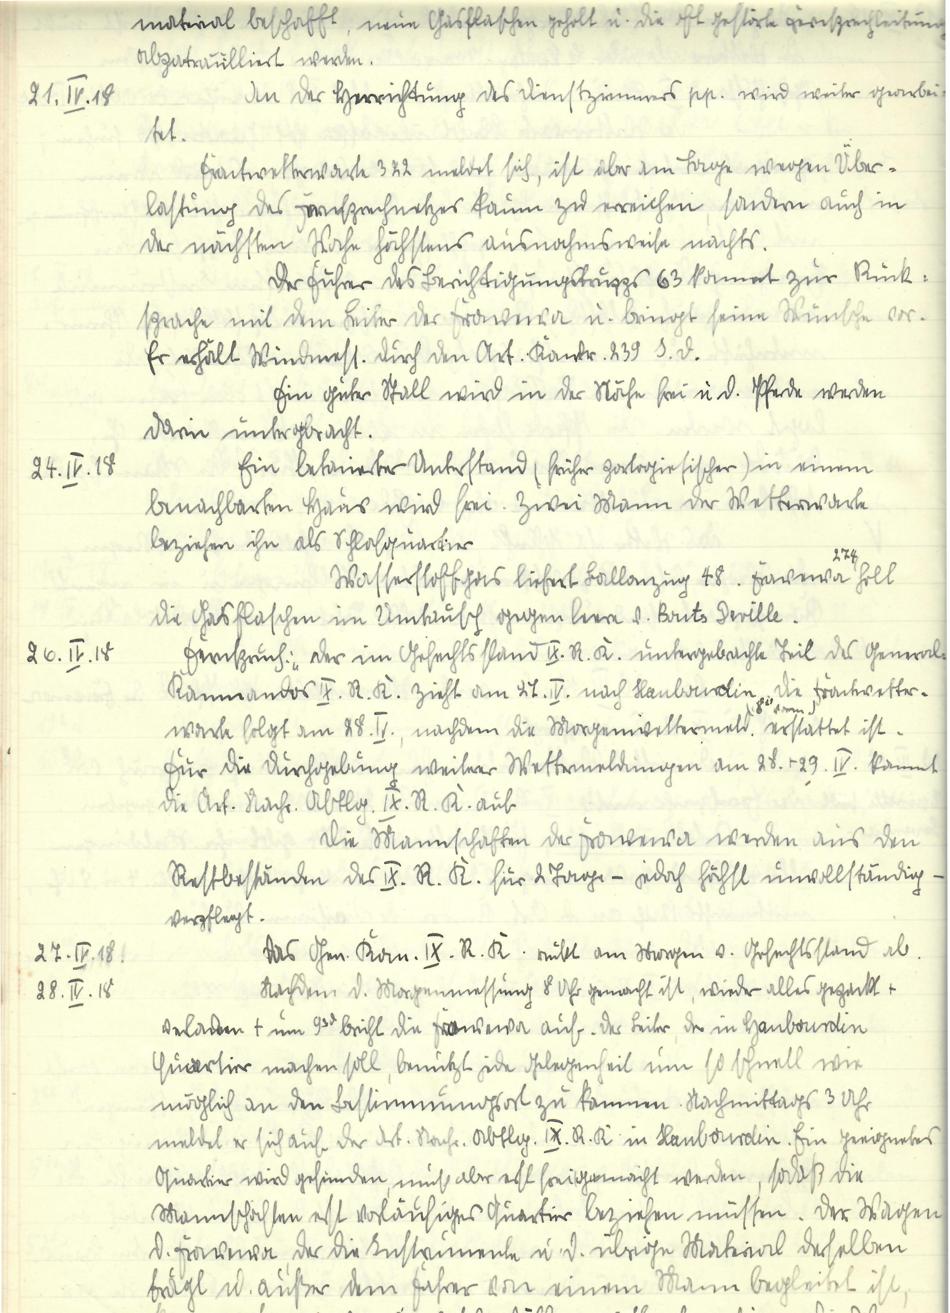 material beschafft, neue Gasflaschen geholt u. die oft gestörte Fernsprechleitung
abpatroulliert werden.
21.IV.18 An der Herrichtung des Dienstzimmers pp. wird weiter gearbei-
tet.
Frontwetterwarte 322 meldet sich, ist aber am Tage wegen Über-
lastung des Fernsprechnetzes kaum zu erreichen, sondern auch in
der nächsten Woche höchstens ausnahmsweise nachts.
Der Führer des Berichtigungstrupps 63 kommt zur Rück-
sprache mit dem Leiter der Frowewa u. bringt seine Wünsche vor.
Er erhält Windmess. durch den Art. Komdr. 239 I. D.
Ein guter Stall wird in der Nähe frei u d. Pferde werden
darin untergebracht.
24.IV.18 Ein betonierter Unterstand (früher portugiesischer) in einem
benachbarten Haus wird frei. Zwei Mann der Wetterwarte
beziehen ihn als Schlafquartier
Wasserstoffgas liefert Ballonzug 48. Frowewa 274 holt
die Gasflaschen im Umtausch gegen leere v. Bouts Deville.
26.IV.18 Fernspruch: „Der im Gefechtsstand IX. R. K. untergebrachte Teil des General-
Kommandos IX. R. K. zieht am 27. IV. nach Haubourdin. Die Frontwetter-
warte folgt am 28. IV., nachdem die Morgenwettermeld. (8⁰ vorm.) erstattet ist.
Für die Durchgebung weiterer Wettermeldungen am 28. + 29. IV. kommt
die Art. Nachr. Abtlg. IX. R. K. auf.
Die Mannschaften der Frowewa werden aus den
Restbeständen des IX. R. K. für 2 Tage – jedoch höchst unvollständig –
verpflegt.
27.IV.18. Das Gen. Kom. IX. R. K. rückt am Morgen v. Gefechtsstand ab.
28.IV.18 Nachdem d. Morgenmessung 8 Uhr gemacht ist, wieder alles gepackt +
verladen + um 9³⁰ bricht die Frowewa auf. Der Leiter, der in Haubourdin
Quartier machen soll, benützt jede Gelegenheit um so schnell wie
möglich an den Bestimmungsort zu kommen. Nachmittags 3 Uhr
meldet er sich auf der Art. Nachr. Abtlg. IX. R. K in Haubourdin. Ein geeignetes
Quartier wird gefunden, muß aber erst freigemacht werden, sodaß die
Mannschaften erst vorläufiges Quartier beziehen müssen. Der Wagen
d. Frowewa, der die Instrumente u. d. übrige Material derselben
trägt u. außer dem Fahrer von einem Mann begleitet ist,